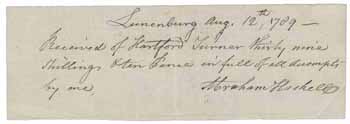 Lunenburg Aug. 12th, 1789 —
Received of Hartford Turner thirty nine
Shillings & ten Pence in full of all accompts
by me, Abraham Haskell